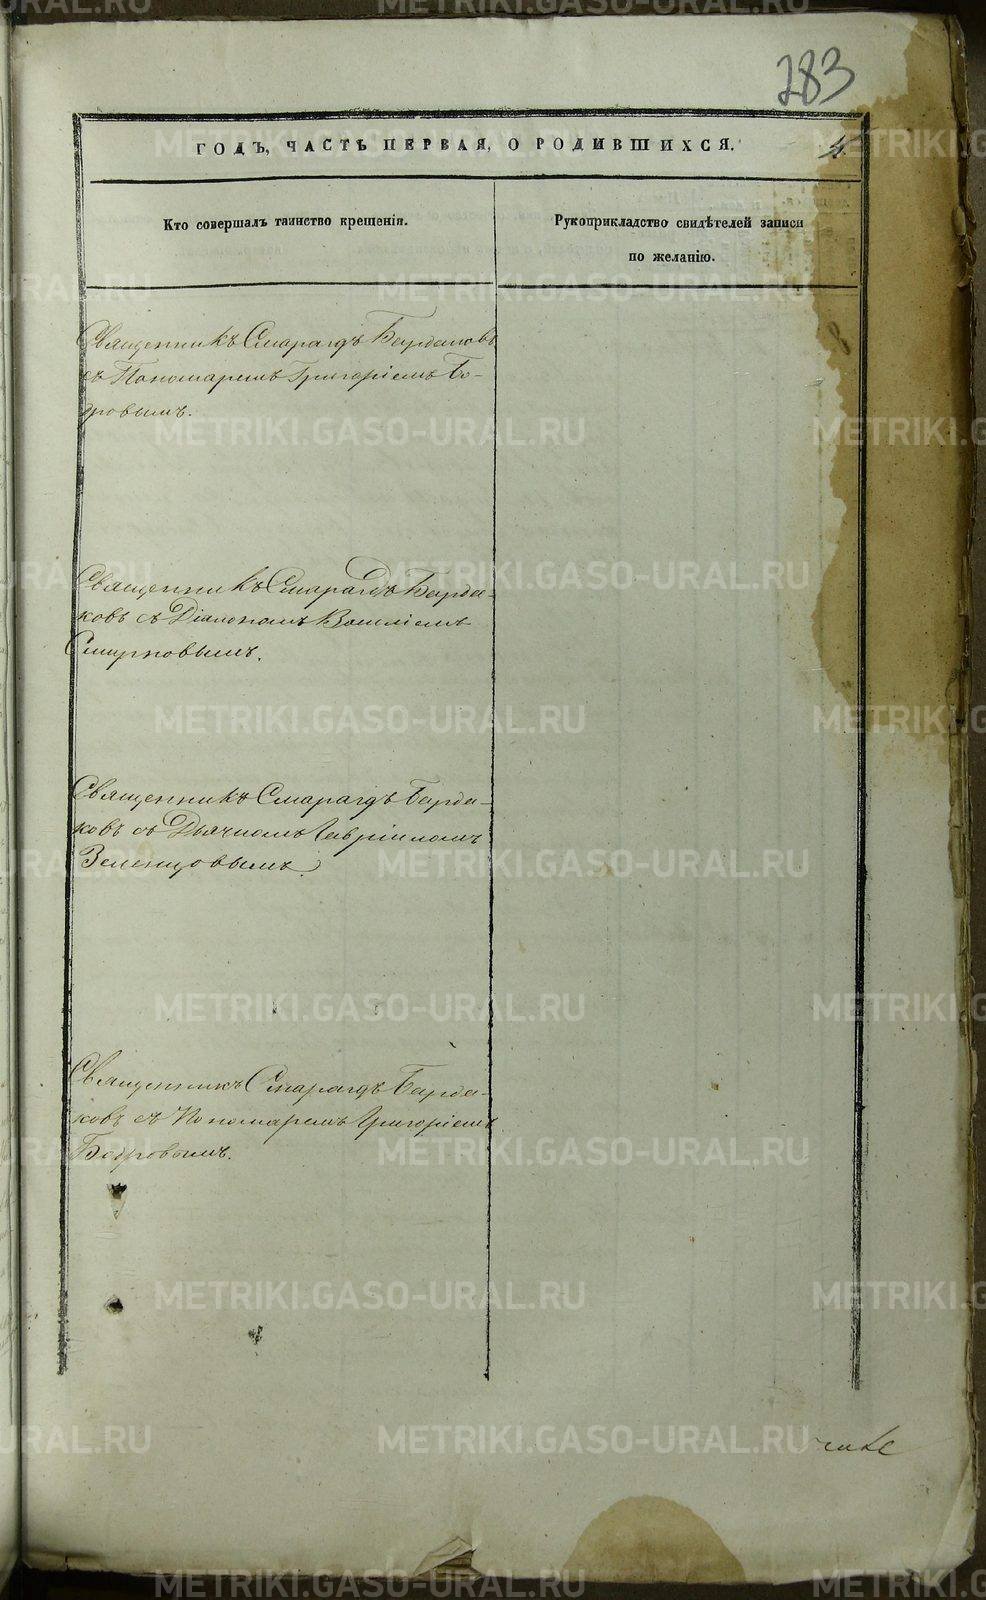 283
ГОДЪ, ЧАСТЬ ПЕРВАЯ, О РОДИВШИХСЯ.
4.
Кто совершалъ таинство крещенія.
Рукоприкладство свидѣтелей записи
по желанію.
Священникъ Смарагдъ Бардаковъ
съ Пономаремъ Григоріемъ Бо-
бровымъ.
Священникъ Смарагдъ Барда-
ковъ съ Діакономъ Василіемъ
Смирновымъ.
Священникъ Смарагдъ Барда-
ковъ съ Дьячкомъ Гавріиломъ
Зеленцовымъ.
Священникъ Смарагдъ Барда-
ковъ съ Пономаремъ Григоріемъ
Бобровымъ.
METRIKI.GASO-URAL.RU